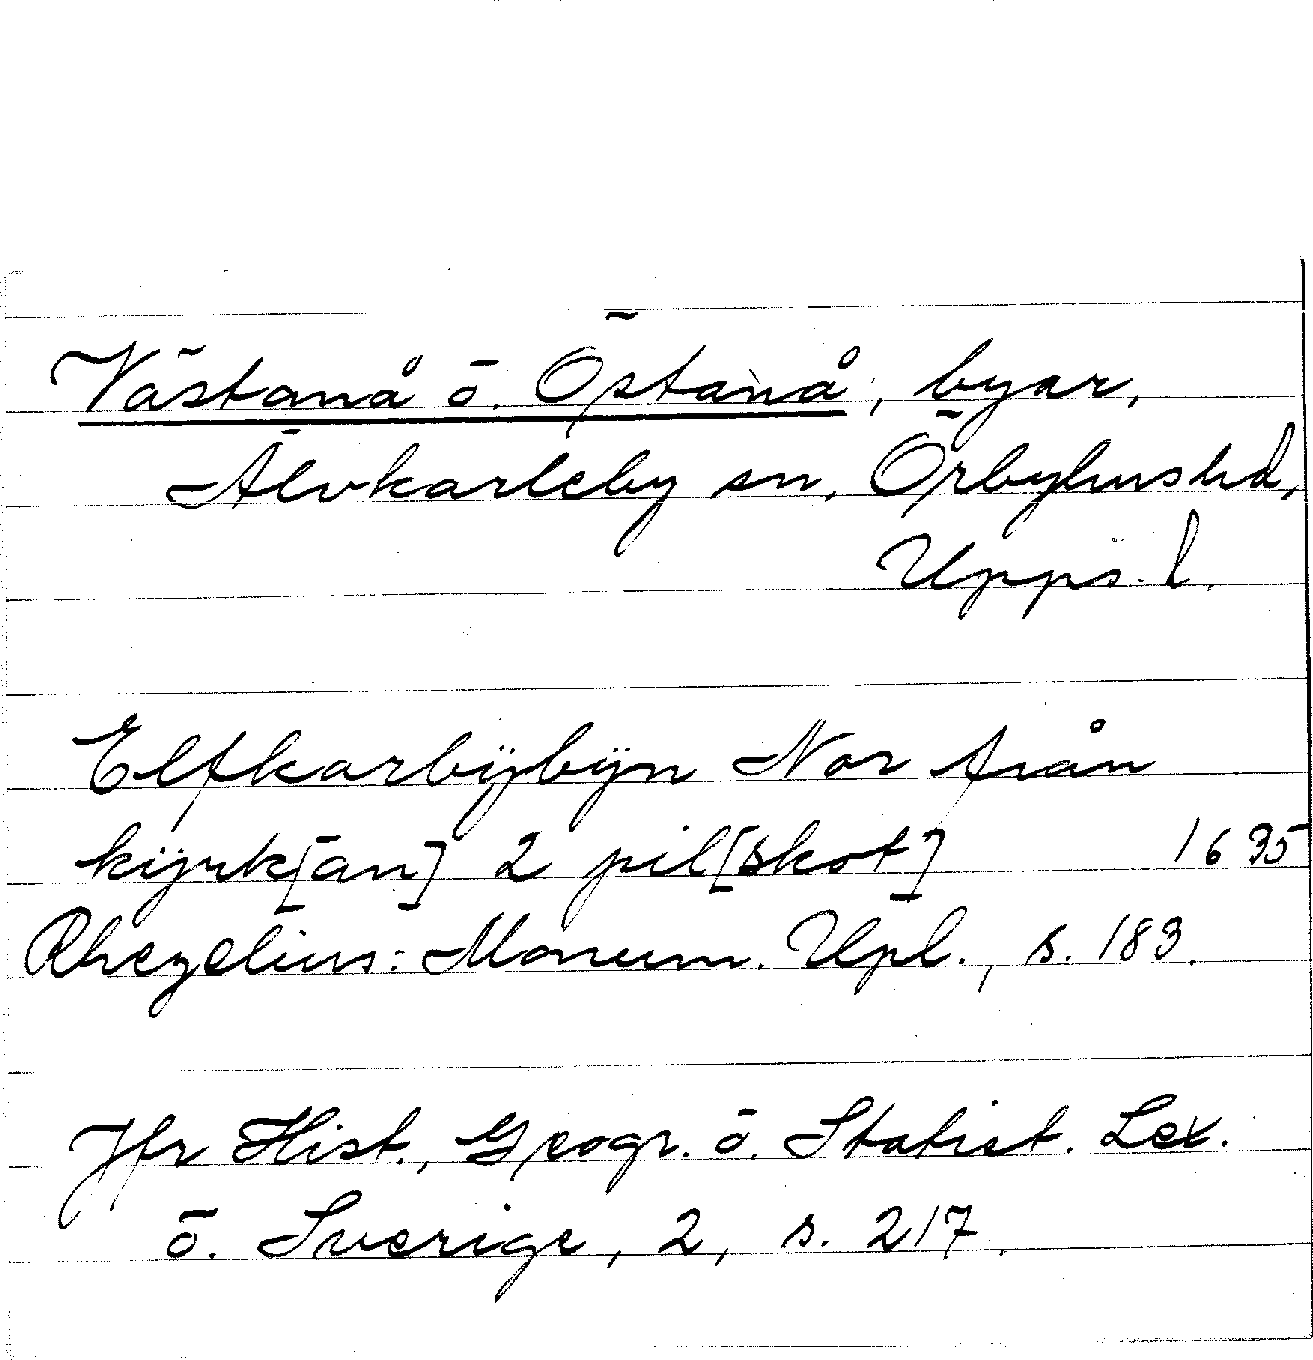 Västanå o. Östanå, byar,
Älvkarleby sn, Örbyhus hd,
Upps. l.
Elfkarbÿbÿn Nor från
kÿrk[an] 2 pil[skot] 1635
Rhezelius: Monum. Upl., s. 183.
Jfr Hist., Geogr. o. Statist. Lex.
ö. Sverige, 2, s. 217.